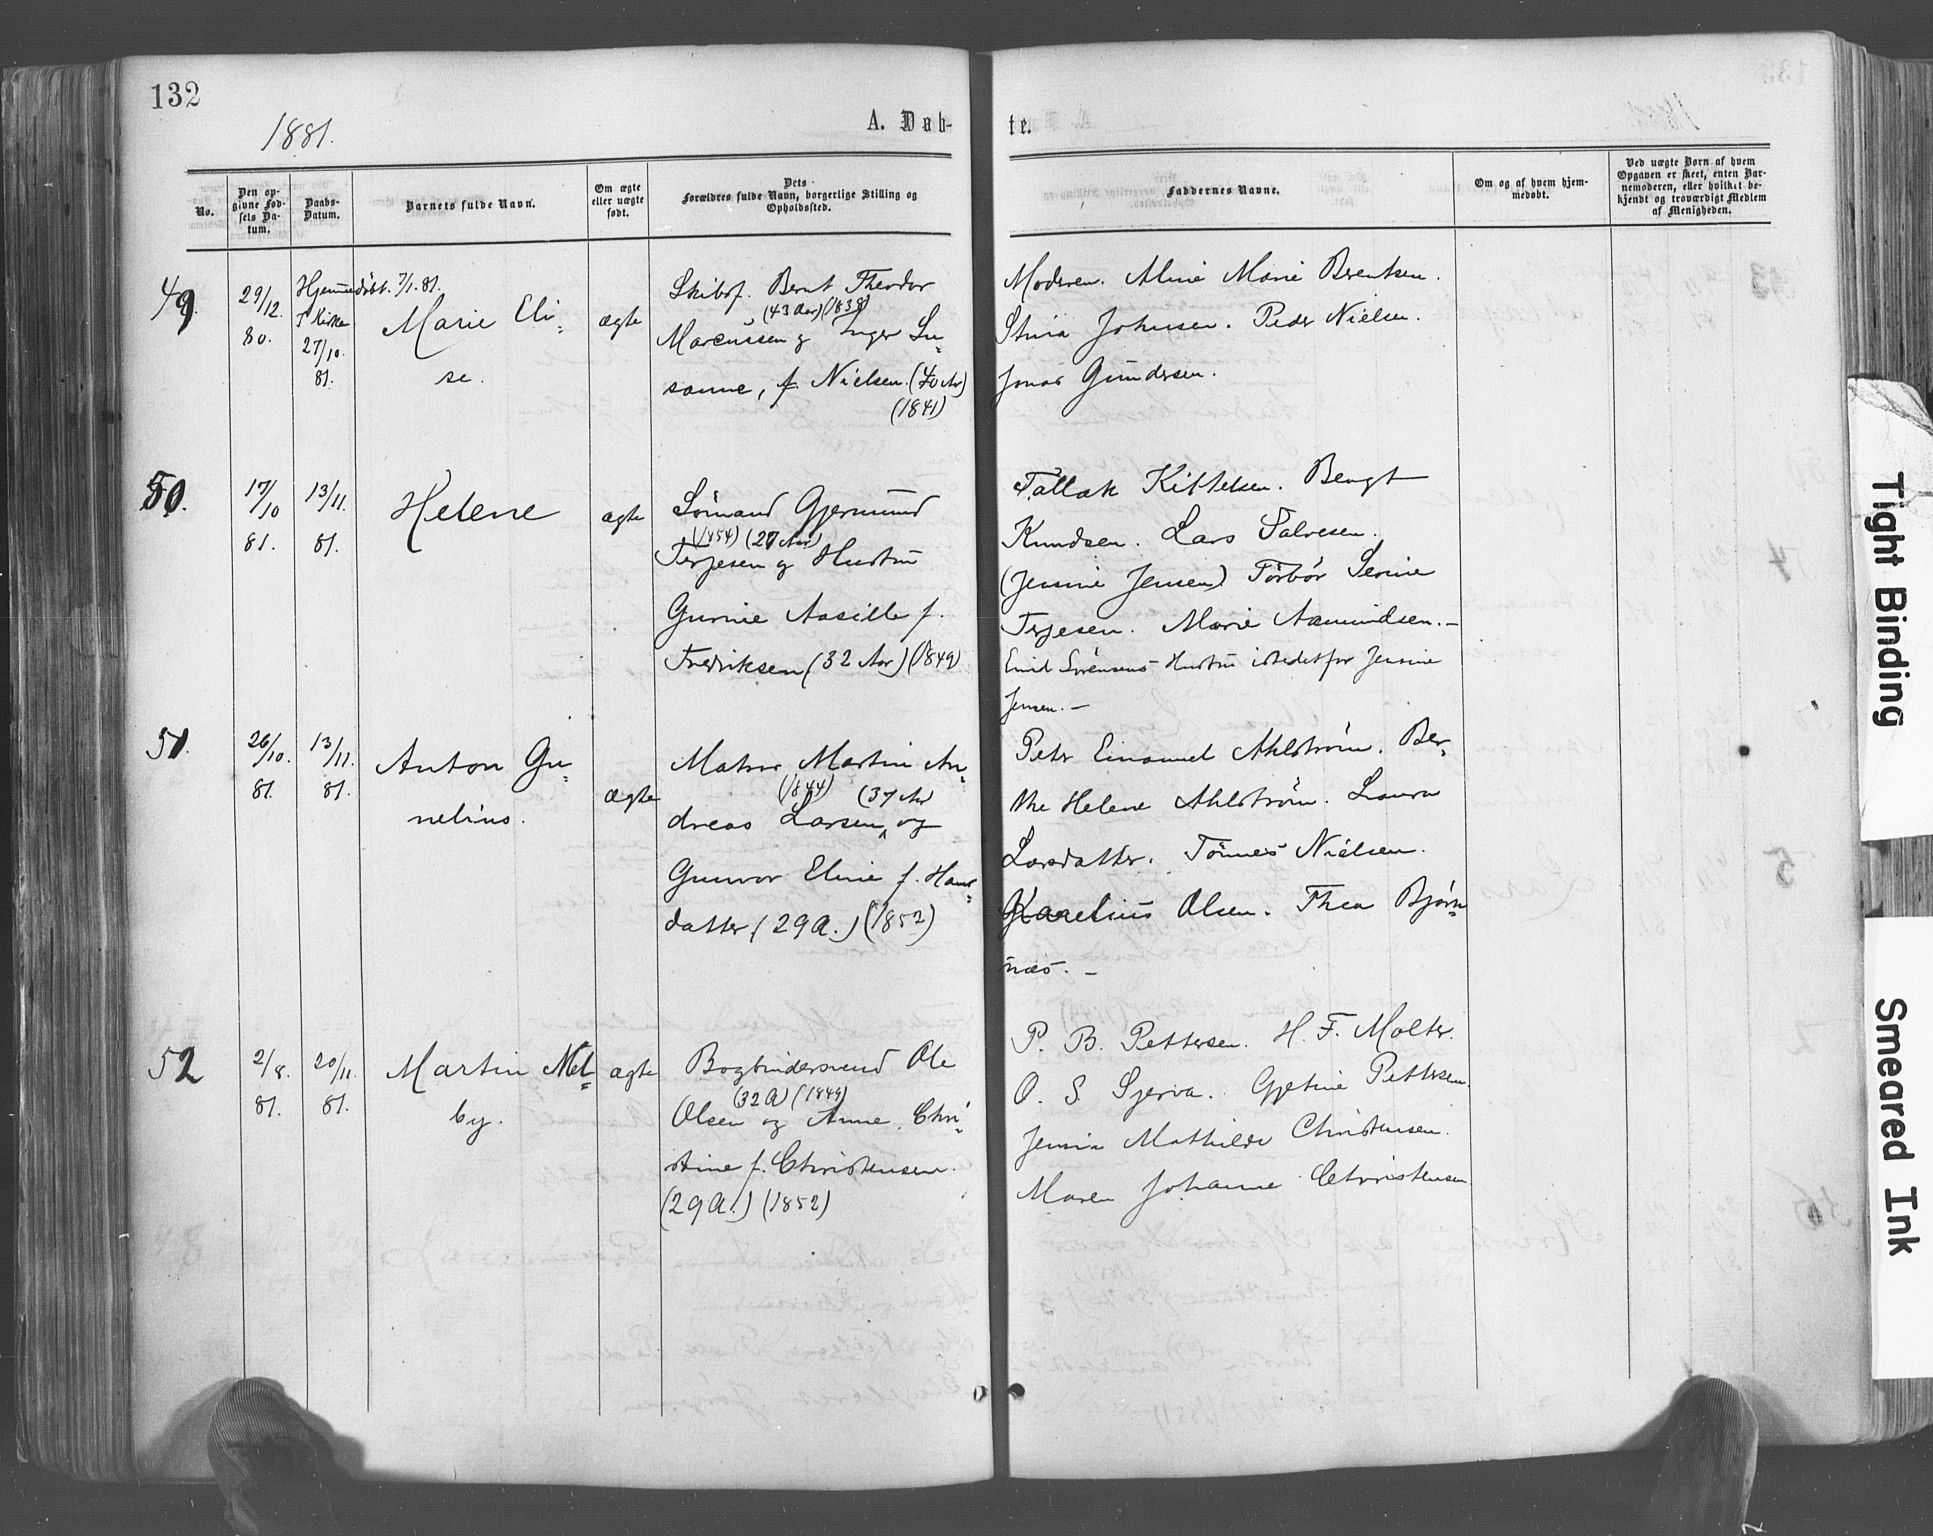 132
1881.
A. Døb-
te.
No.
Den op-
givne Fød-
sels Da-
tum.
Daabs-
Datum.
Barnets fulde Navn.
Om ægte
eller uægte
født.
Dets
Forældres fulde Navn, borgerlige Stilling og
Opholdssted.
Faddernes Navne.
Om og af hvem hjem-
medøbt.
Ved uægte Børn af hvem
Opgaven er skeet, enten Bar-
nemoderen, eller hvilket be-
kjendt og troværdigt Medlem
af Menigheden.
49.
29/12.
80.
Hjemmedøbt. 7/1.81.
I Kirke
27/10.
81.
Marie Eli-
se.
ægte
Skibsf. Bernt Theodor
(43 Aar) (1838)
Marcussen og Inger Su-
sanne, f. Nielsen. (40 Ar)
(1841)
Moderen. Aline Marie Berentsen.
Stina Johnsen. Peder Nielsen.
Jonas Gundersen.
50.
17/10
81.
13/11.
81.
Helene
ægte
Sømand Gjermund
(1854) (27 Aar)
Terjesen og Hustru
Gurine Aasille f.
Fredriksen (32 Aar) (1849)
Tallak Kittelsen. Bengt
Knudsen. Lars Talvesen.
(Jensine Jensen) Torbør Serine
Terjesen. Marie Aamundsen. -
Emil Sørensens Hustru istedetfor Jensine
Jensen. -
51.
26/10.
81.
13/11.
81.
Anton Gu-
nelius.
ægte
Matros Martin An-
(1844) (37 Ar)
dreas Larsen, og
Gunvor Eline f. Hans-
datter. (29 A.) (1852)
Peter Emanuel Ahlstrøm. Ber-
the Helene Ahlstrøm. Laura
Larsdatter. Tønnes Nielsen.
Karelius Olsen. Thea Bjørn-
næs. -
52
2/8.
81.
20/11.
81.
Martin Mel-
by.
ægte
Bogbindersvend Ole
(32 A) (1849)
Olsen og Anne Chri-
stine f. Christensen.
(29 A.) (1852)
P. B. Pettersen. H. F. Molter.
O. S. Sjerva. Gjetine Pettersen.
Jensine Mathilde Christensen.
Maren Johanne Christensen
Tight Binding
Smeared Ink